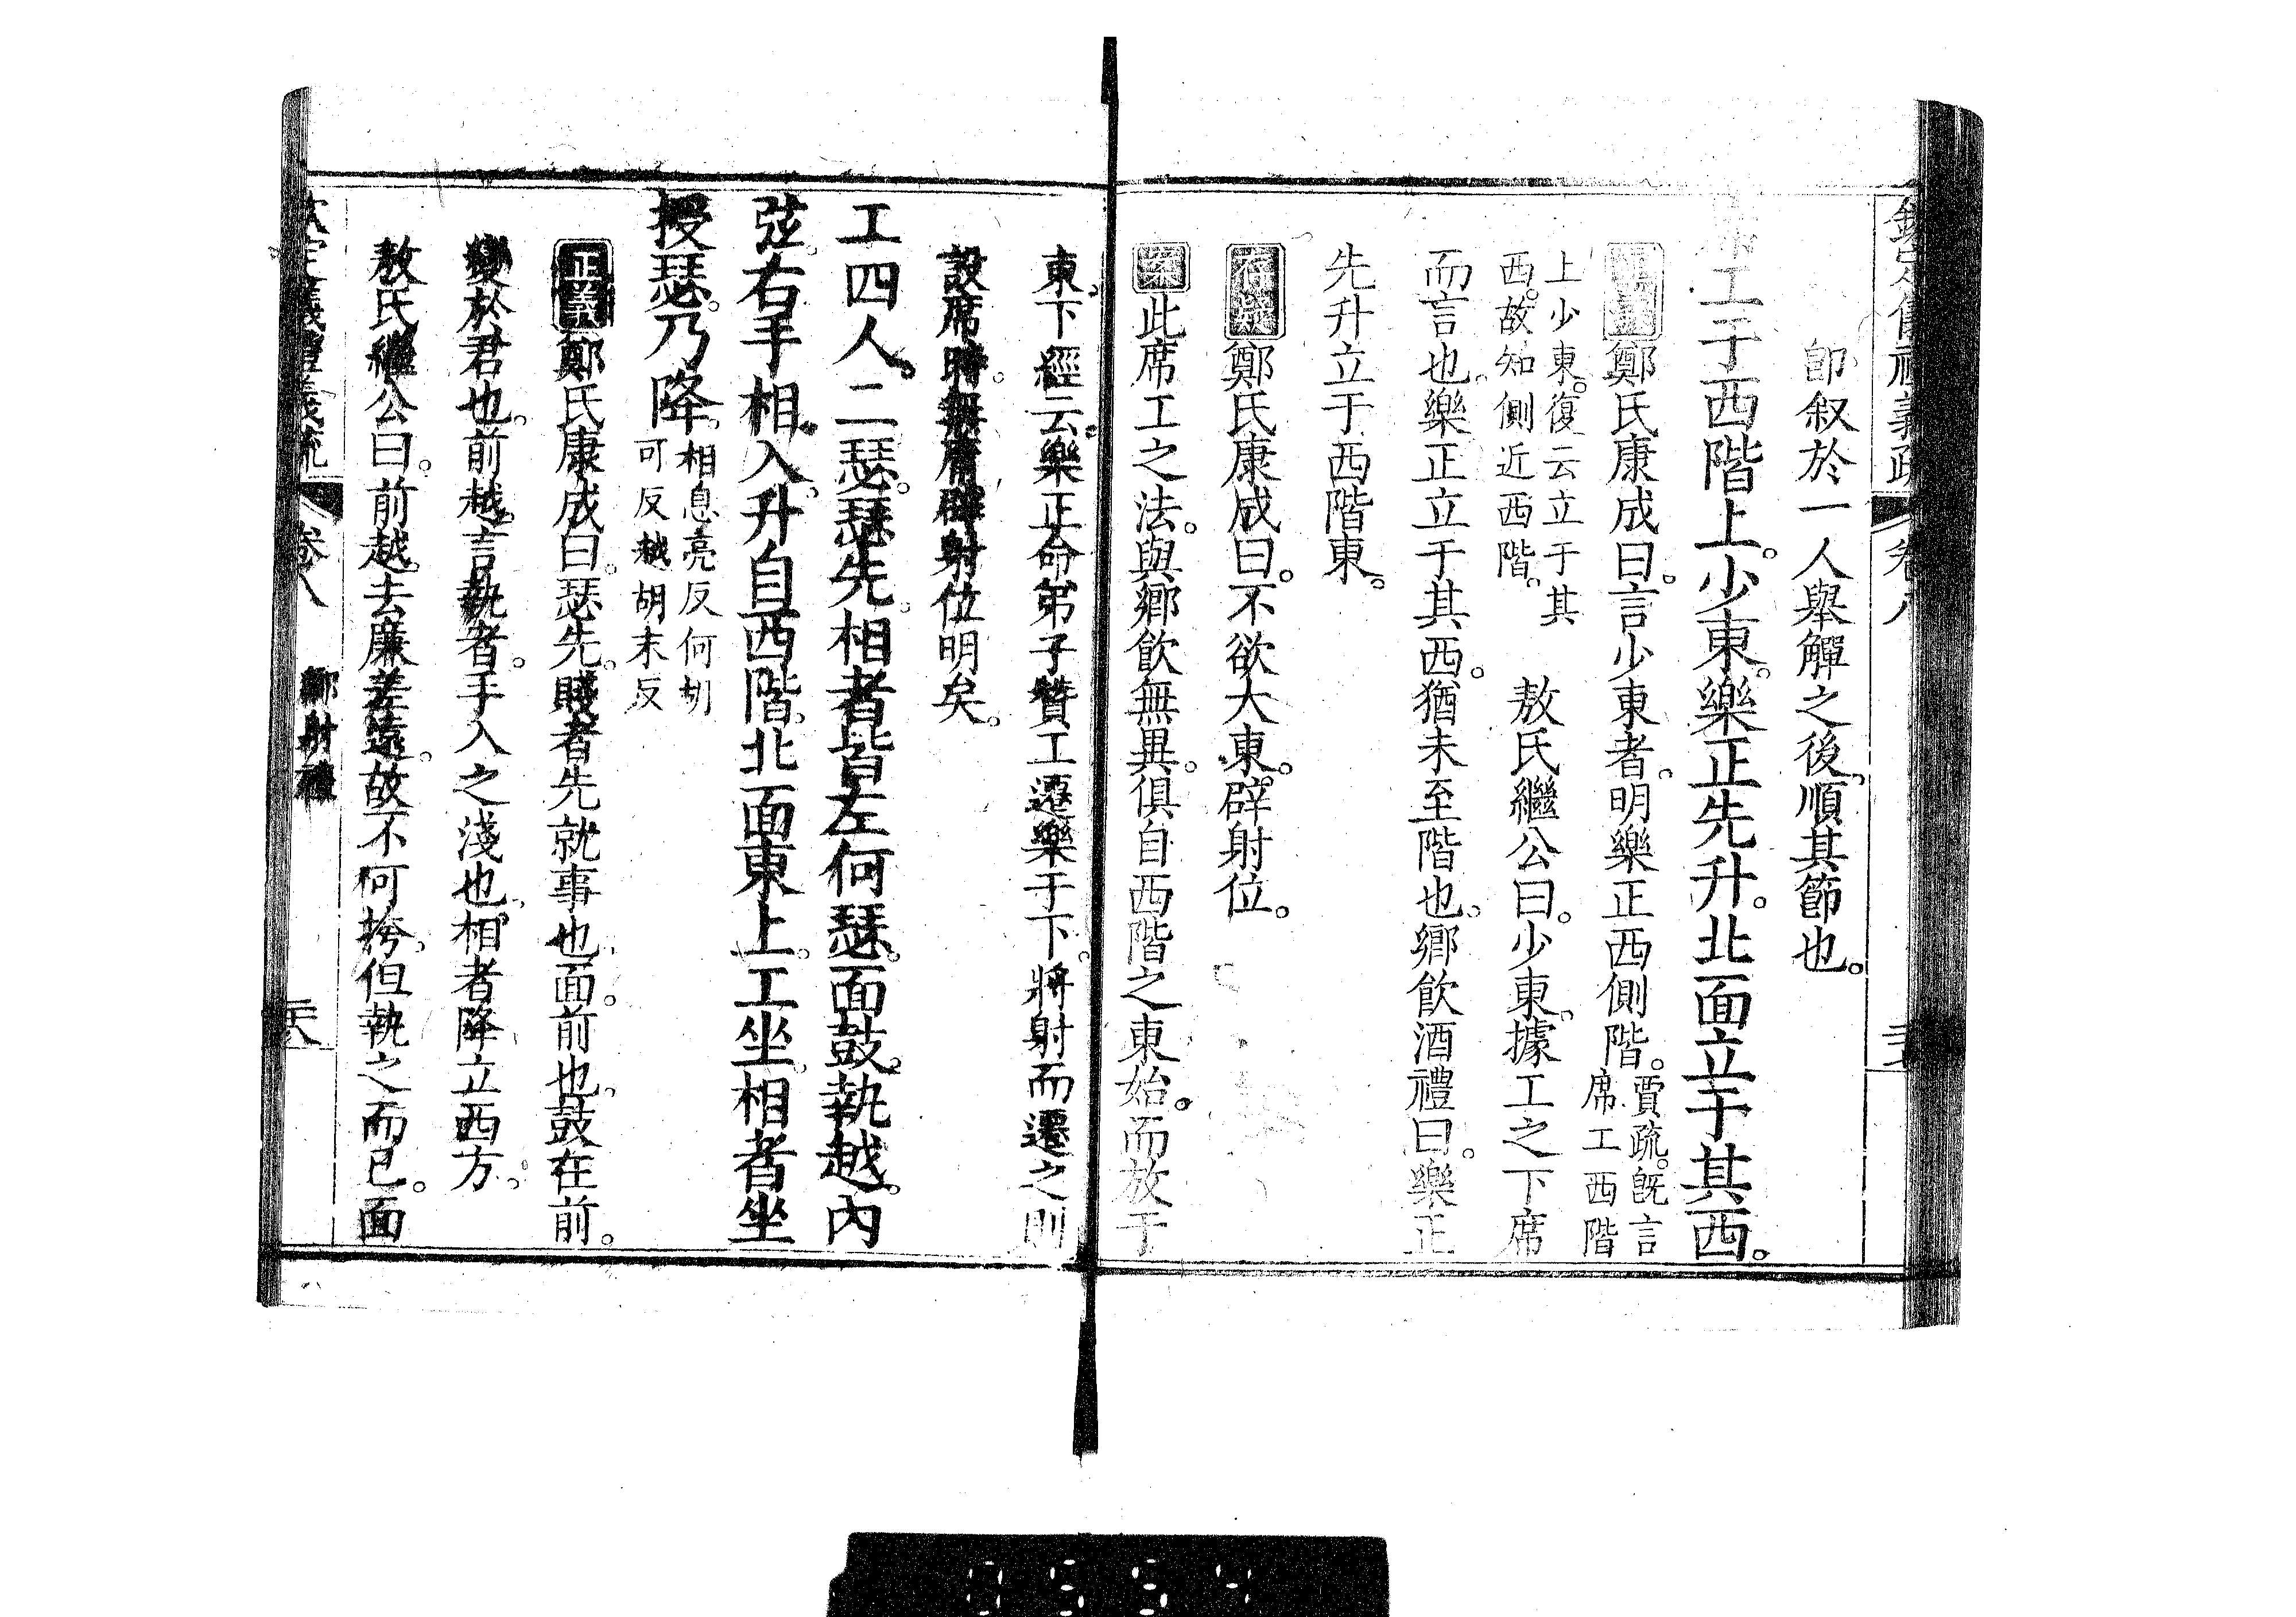 即叙於一人舉觶之後順其節也。
席工于西階上。少東。樂正先升。北面立于其西。
正義鄭氏康成曰。言少東者。明樂正西側階。賈疏。旣言席工西階
上少東。復云立于其西。故知側近西階。敖氏繼公曰。少東。據工之下席
而言也。樂正立于其西。猶未至階也。鄉飲酒禮曰。樂正
先升立于西階東。
存疑鄭氏康成曰。不欲大東。辟射位。
案此席工之法。與鄉飲無異。俱自西階之東始。而放于
東。下經云。樂正命弟子贊工遷樂于下。將射而遷之。則
設席時。無庸辟射位明矣。
工四人。二瑟。瑟先。相者皆左何瑟。面鼓。執越。內
弦。右手相。入。升自西階。北面東上。工坐。相者坐
授瑟。乃降。相息亮反何胡可反越胡末反
正義鄭氏康成曰。瑟先。賤者先就事也。面。前也。鼓在前。
變於君也。前越。言執者。手入之淺也。相者降立西方。
敖氏繼公曰。前越。去廉差遠。故不何挎。但執之而已。面
卷八
鄉射禮